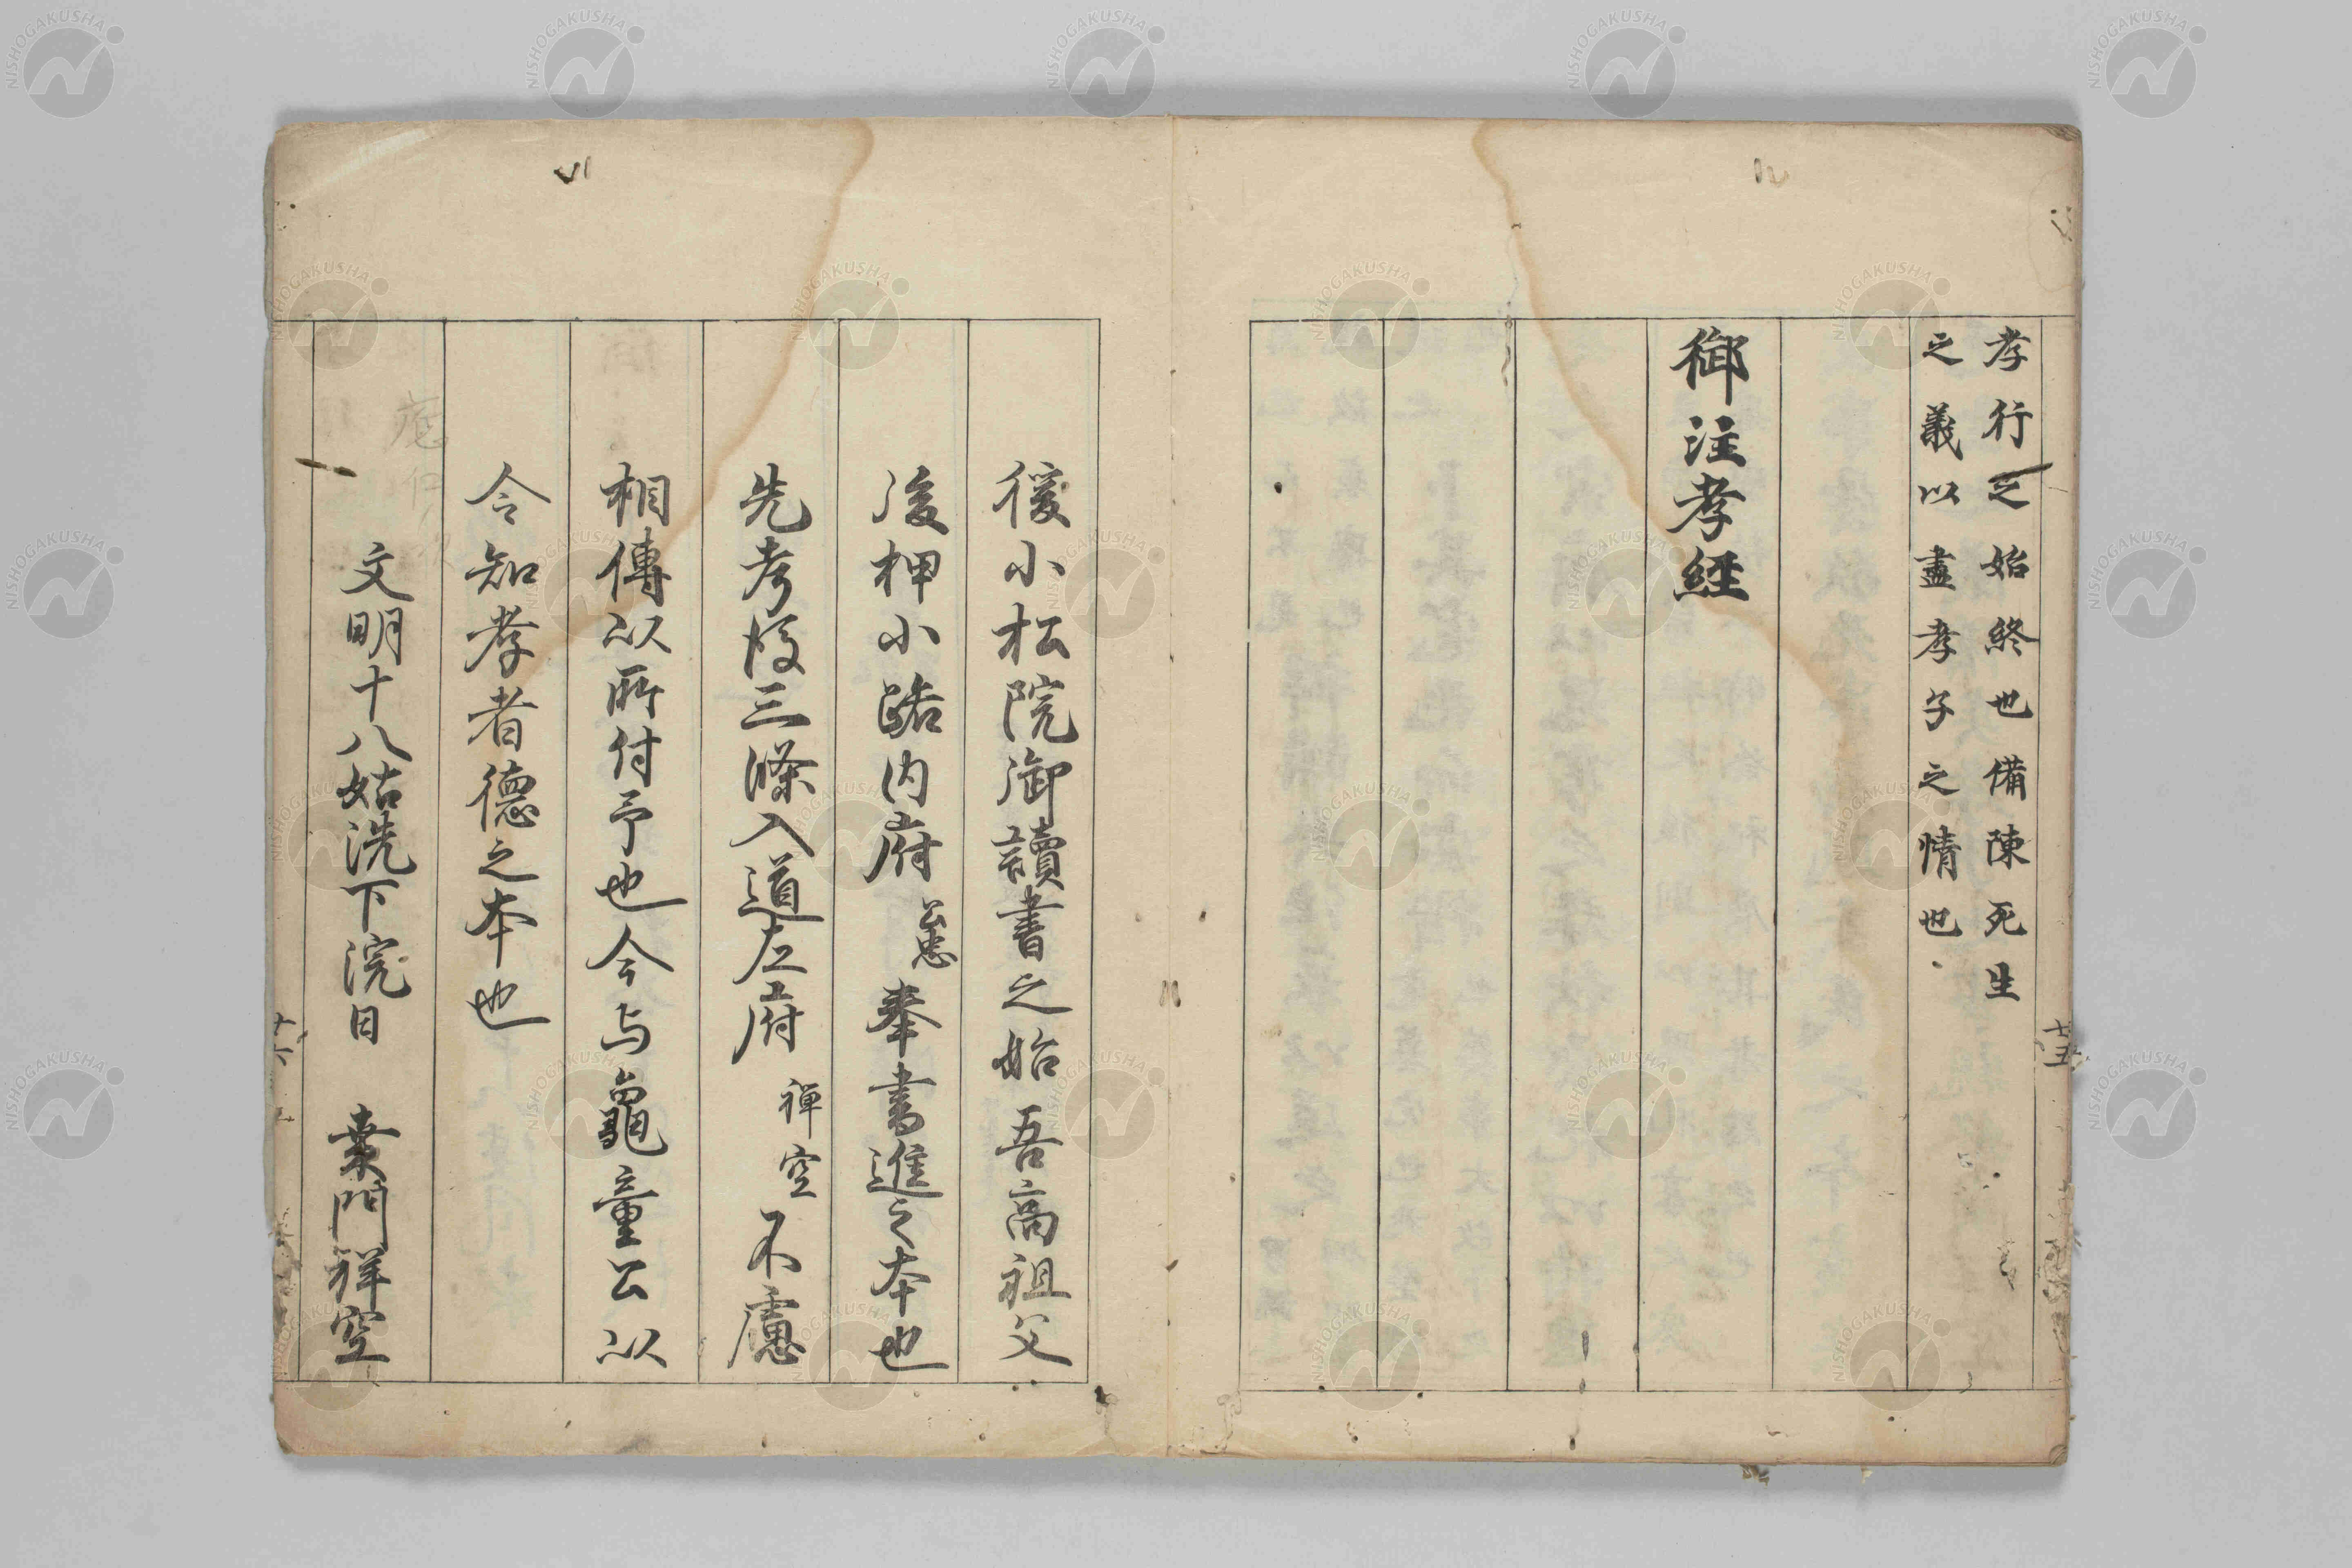 孝行之始終也備陳死生
之義以盡孝子之情也
御注孝經
十五
後小松院御讀書之始吾高祖父
後押小路内府奉書進之本也
先考後三條入道左府禅空不慮
相傳以所付予也今与龜童公以
令知孝者德之本也
文明十八姑洗下浣日 桒門祥空
十六
NISHOGAKUSHA